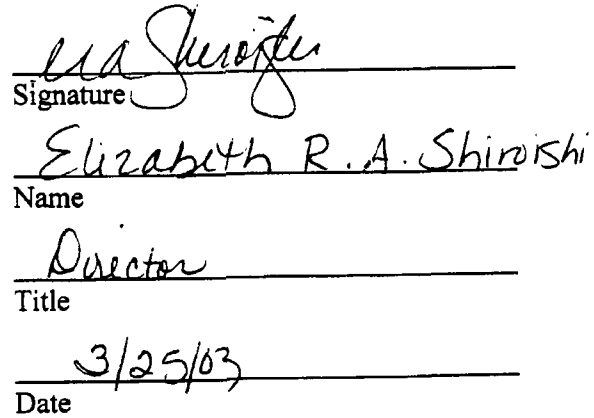 era Shiroishi
Signature
Elizabeth R. A. Shiroishi
Name
Director
Title
3/25/03
Date